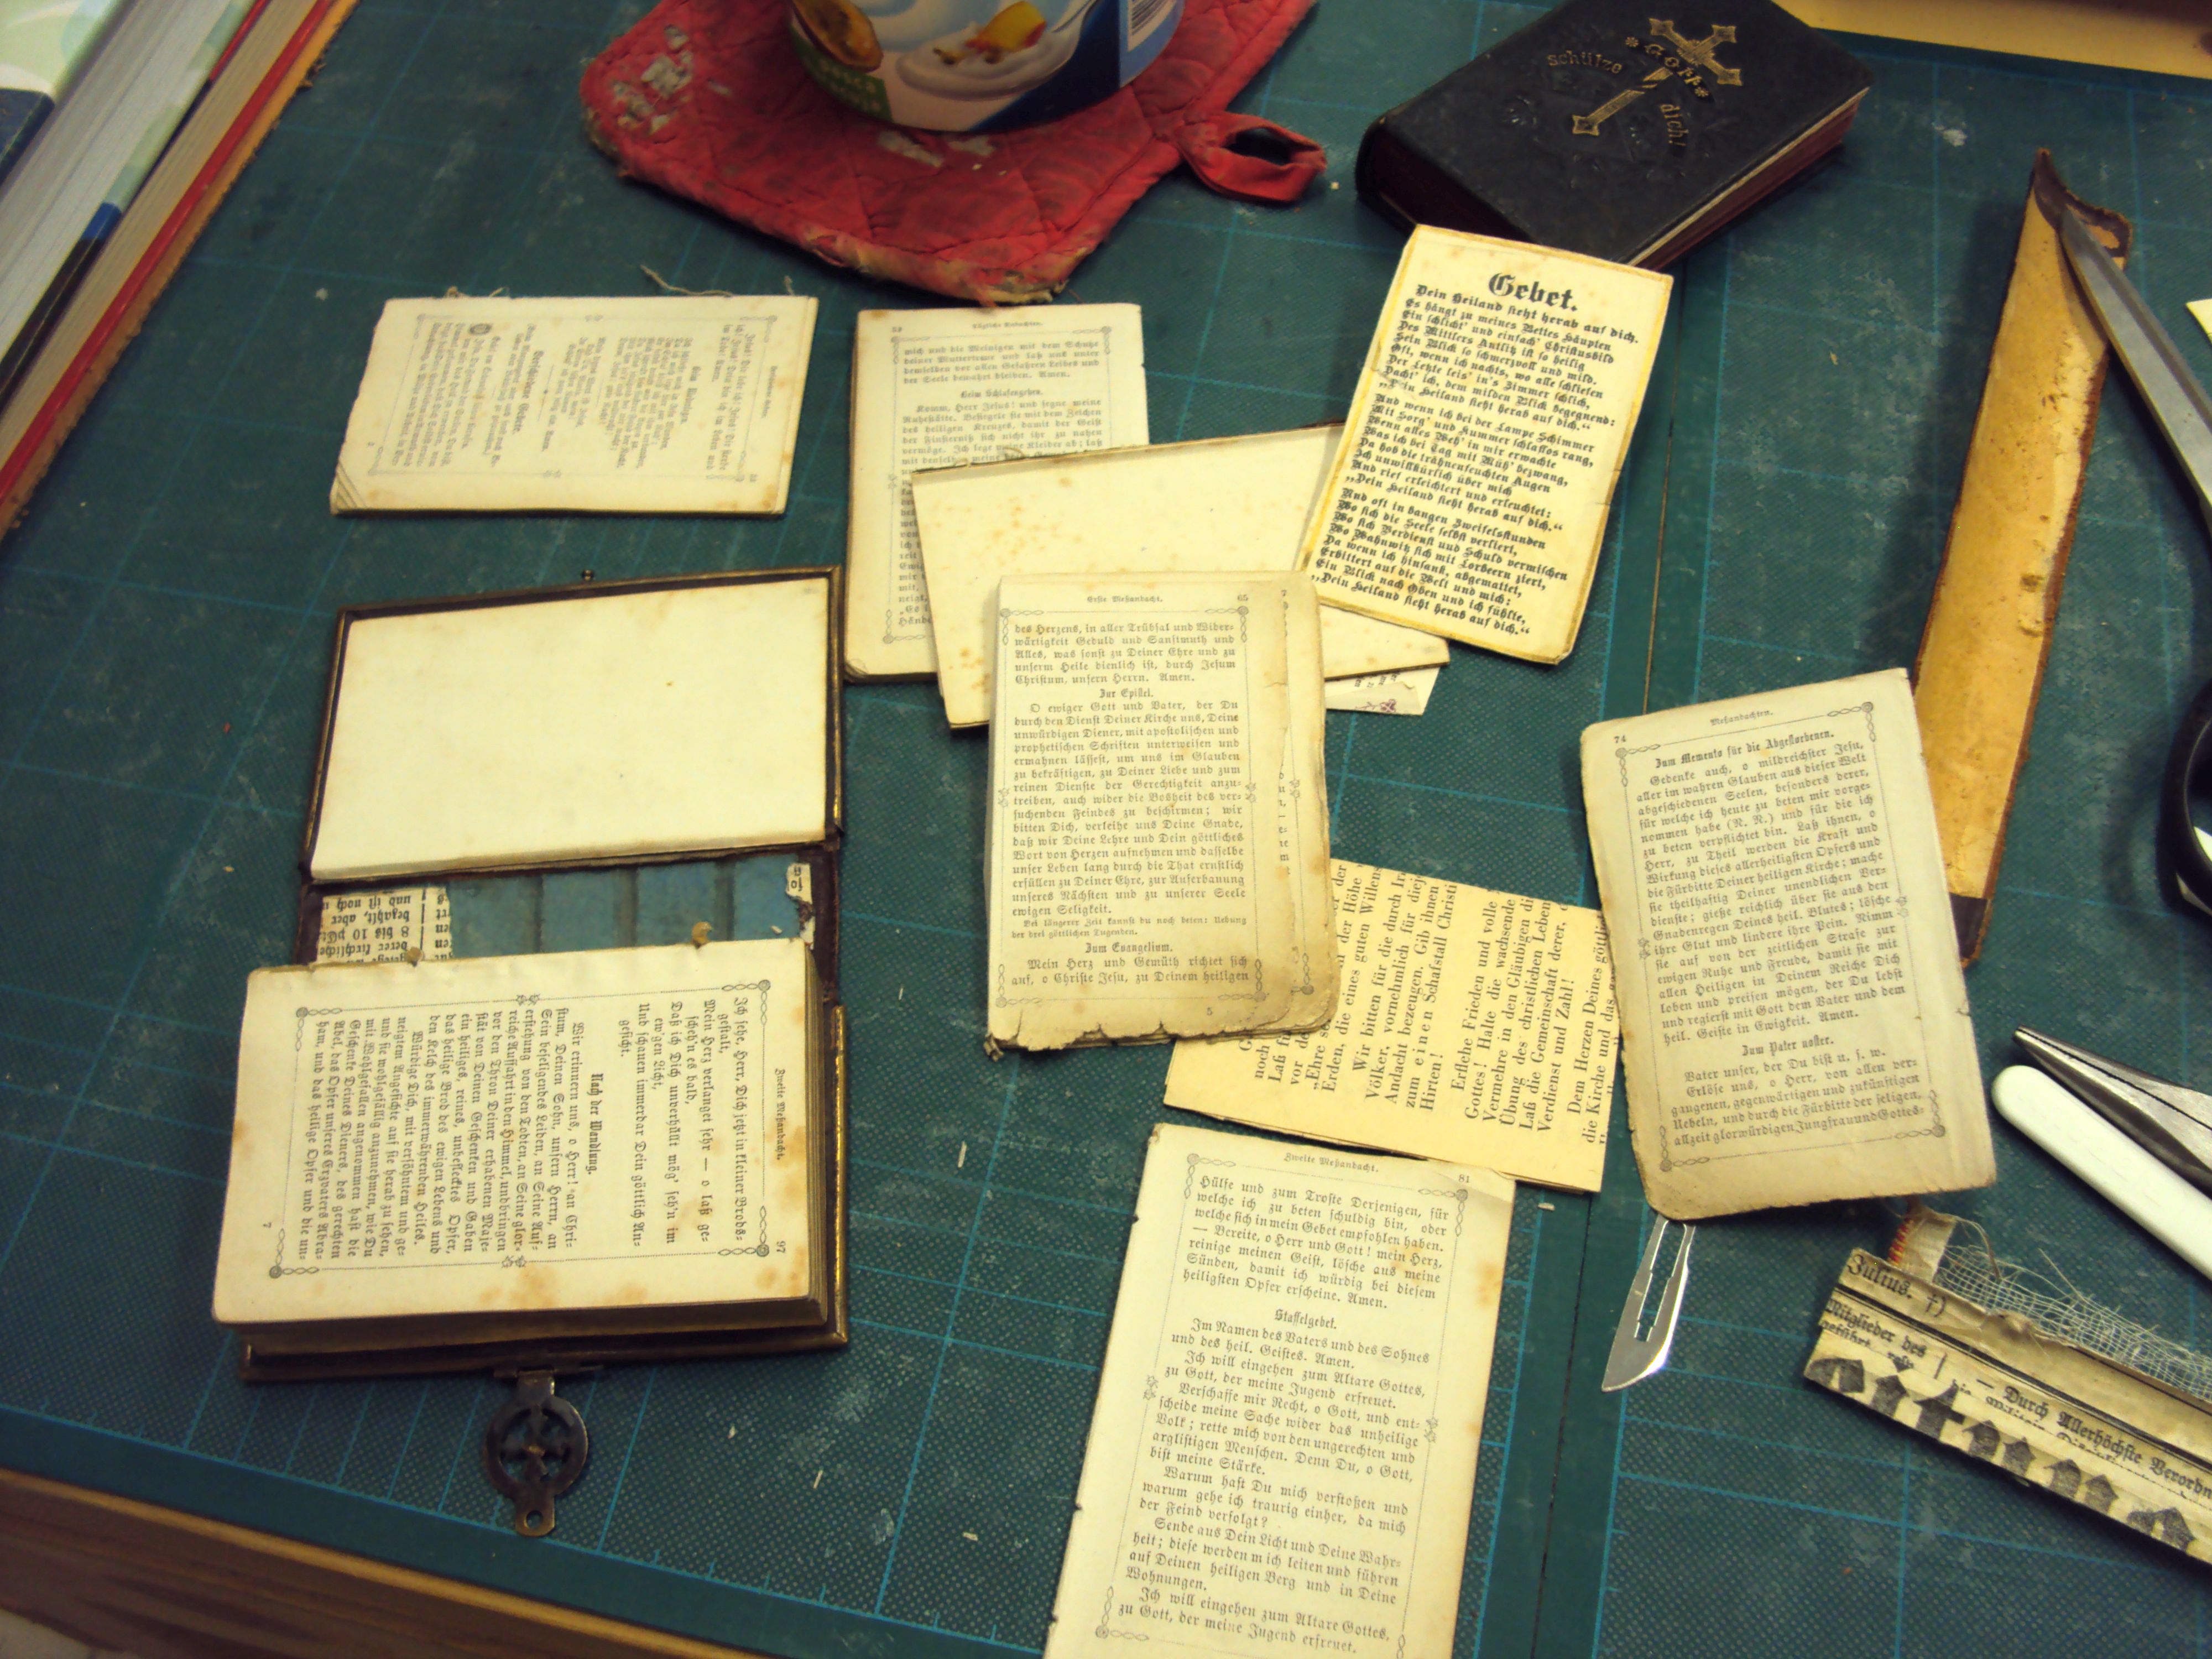 schütze
Gott
dich!
Gebet.
Dein Heiland sieht herab auf dich.
Es hängt zu meines Bettes Häupten
Ein schlicht' und einfach' Christusbild
Des Mittlers Antlitz ist so heilig
Sein Blick so schmerzvoll und mild.
Oft, wenn ich nachts, wo alle schliefen
Der Letzte leis' in's Zimmer schlich,
Dacht' ich, dem milden Blick begegnend:
„Dein Heiland sieht herab auf dich.“
Und wenn ich bei der Lampe Schimmer
Mit Sorg' und Kummer schlaflos rang,
Wenn alles Weh' in mir erwachte
Was ich bei Tag mit Müh' bezwang,
Da hob die tränenfeuchten Augen
Ich unwillkürlich über mich
Und rief erleichtert und erleuchtet:
„Dein Heiland sieht herab auf dich.“
Und oft in bangen Zweifelsstunden
Wo sich die Seele selbst verliert,
Wo sich Verdienst und Schuld vermischen
Wo Wahnwitz sich mit Lorbeern ziert,
Da wenn ich hinsank, abgemattet,
Erbittert auf die Welt und mich:
Ein Blick nach Oben und ich fühlte,
„Dein Heiland sieht herab auf dich.“
Tägliche Andachten.
mich und die Meinigen mit dem Schutze
deiner Muttertreue und laß uns unter
demselben vor allen Gefahren Leibes und
der Seele bewahrt bleiben. Amen.
Beim Schlafengehen.
Komm, Herr Jesus! und segne meine
Ruhestätte. Besiegele sie mit dem Zeichen
des heiligen Kreuzes, damit der Geist
der Finsterniß sich nicht ihr zu nahen
vermöge. Ich lege meine Kleider ab; laß
Verschiedene Gebete.
Erste Meßandacht. 65
des Herzens, in aller Trübsal und Wider-
wärtigkeit Geduld und Sanftmuth und
Alles, was sonst zu Deiner Ehre und zu
unserm Heile dienlich ist, durch Jesum
Christum, unsern Herrn. Amen.
Zur Epistel.
O ewiger Gott und Vater, der Du
durch den Dienst Deiner Kirche uns, Deine
unwürdigen Diener, mit apostolischen und
prophetischen Schriften unterweisen und
ermahnen lässest, um uns im Glauben
zu bekräftigen, zu Deiner Liebe und zum
reinen Dienste der Gerechtigkeit anzu-
treiben, auch wider die Bosheit des ver-
suchenden Feindes zu beschirmen; wir
bitten Dich, verleihe uns Deine Gnade,
daß wir Deine Lehre und Dein göttliches
Wort von Herzen aufnehmen und dasselbe
unser Leben lang durch die That ernstlich
erfüllen zu Deiner Ehre, zur Auferbauung
unseres Nächsten und zu unserer Seele
ewigen Seligkeit.
Bei längerer Zeit kannst du noch beten: Uebung
der drei göttlichen Tugenden.
Zum Evangelium.
Mein Herz und Gemüth richtet sich
auf, o Christe Jesu, zu Deinem heiligen
5
74 Meßandachten.
Zum Memento für die Abgestorbenen.
Gedenke auch, o mildreichster Jesu,
aller im wahren Glauben aus dieser Welt
abgeschiedenen Seelen, besonders derer,
für welche ich heute zu beten mir vorge-
nommen habe (N. N.) und für die ich
zu beten verpflichtet bin. Laß ihnen, o
Herr, zu Theil werden die Kraft und
Wirkung dieses allerheiligsten Opfers und
die Fürbitte Deiner heiligen Kirche; mache
sie theilhaftig Deiner unendlichen Ver-
dienste; gieße reichlich über sie aus den
Gnadenregen Deines heil. Blutes; lösche
ihre Glut und lindere ihre Pein. Nimm
sie auf von der zeitlichen Strafe zur
ewigen Ruhe und Freude, damit sie mit
allen Heiligen in Deinem Reiche Dich
loben und preisen mögen, der Du lebst
und regierst mit Gott dem Vater und dem
heil. Geiste in Ewigkeit. Amen.
Zum Pater noster.
Vater unser, der Du bist u. s. w.
Erlöse uns, o Herr, von allen ver-
gangenen, gegenwärtigen und zukünftigen
Uebeln, und durch die Fürbitte der seligen,
allzeit glorwürdigen Jungfrau und Gottes-
der Höhe
Erden, die eines guten Willens
Wir bitten für die durch
Völker, vornehmlich für
Andacht bezeugen. Gib ihnen
zum einen Schafstall Christi
Hirten!
Erflehe Frieden und volle
Gottes! Halte die wachsende
Vermehre in den Gläubigen
Übung des christlichen Leben
Laß die Gemeinschaft derer,
Verdienst und Zahl!
Dem Herzen Deines göttli
die Kirche und das
Zweite Meßandacht. 97
Ich sehe, Herr, Dich jetzt in kleiner Brods-
gestalt,
Mein Herz verlanget sehr — o laß ge-
scheh'n es bald,
Daß ich Dich unverhüllt mög' seh'n im
ew'gen Licht,
Und schauen immerdar Dein göttlich An-
gesicht.
Nach der Wandlung.
Wir erinnern uns, o Herr! an Chri-
stum, Deinen Sohn, unsern Herrn, an
Sein beseligendes Leiden, an Seine Auf-
erstehung von den Todten, an Seine glor-
reiche Auffahrt in den Himmel, und bringen
vor den Thron Deiner erhabenen Maje-
stät von Deinen Geschenken und Gaben
ein heiliges, reines, unbeflecktes Opfer,
das heilige Brod des ewigen Lebens und
den Kelch des immerwährenden Heiles.
Würdige Dich, mit versöhntem und ge-
neigtem Angesichte auf sie herab zu sehen,
und sie wohlgefällig anzunehmen, wie Du
mit Wohlgefallen angenommen hast die
Geschenke Deines Dieners, des gerechten
Abel, das Opfer unseres Erzvaters Abra-
ham, und das heilige Opfer und die un-
7
Zweite Meßandacht. 81
Hülfe und zum Troste Derjenigen, für
welche ich zu beten schuldig bin, oder
welche sich in mein Gebet empfohlen haben.
— Bereite, o Herr und Gott! mein Herz,
reinige meinen Geist, lösche aus meine
Sünden, damit ich würdig bei diesem
heiligsten Opfer erscheine. Amen.
Staffelgebet.
Im Namen des Vaters und des Sohnes
und des heil. Geistes. Amen.
Ich will eingehen zum Altare Gottes,
zu Gott, der meine Jugend erfreuet.
Verschaffe mir Recht, o Gott, und ent-
scheide meine Sache wider das unheilige
Volk; rette mich von den ungerechten und
arglistigen Menschen. Denn Du, o Gott,
bist meine Stärke.
Warum hast Du mich verstoßen und
warum gehe ich traurig einher, da mich
der Feind verfolgt?
Sende aus Dein Licht und Deine Wahr-
heit; diese werden mich leiten und führen
auf Deinen heiligen Berg und in Deine
Wohnungen.
Ich will eingehen zum Altare Gottes,
zu Gott, der meine Jugend erfreuet.
Julius. †)
Mitglieder des
— Durch Allerhöchste Verordn